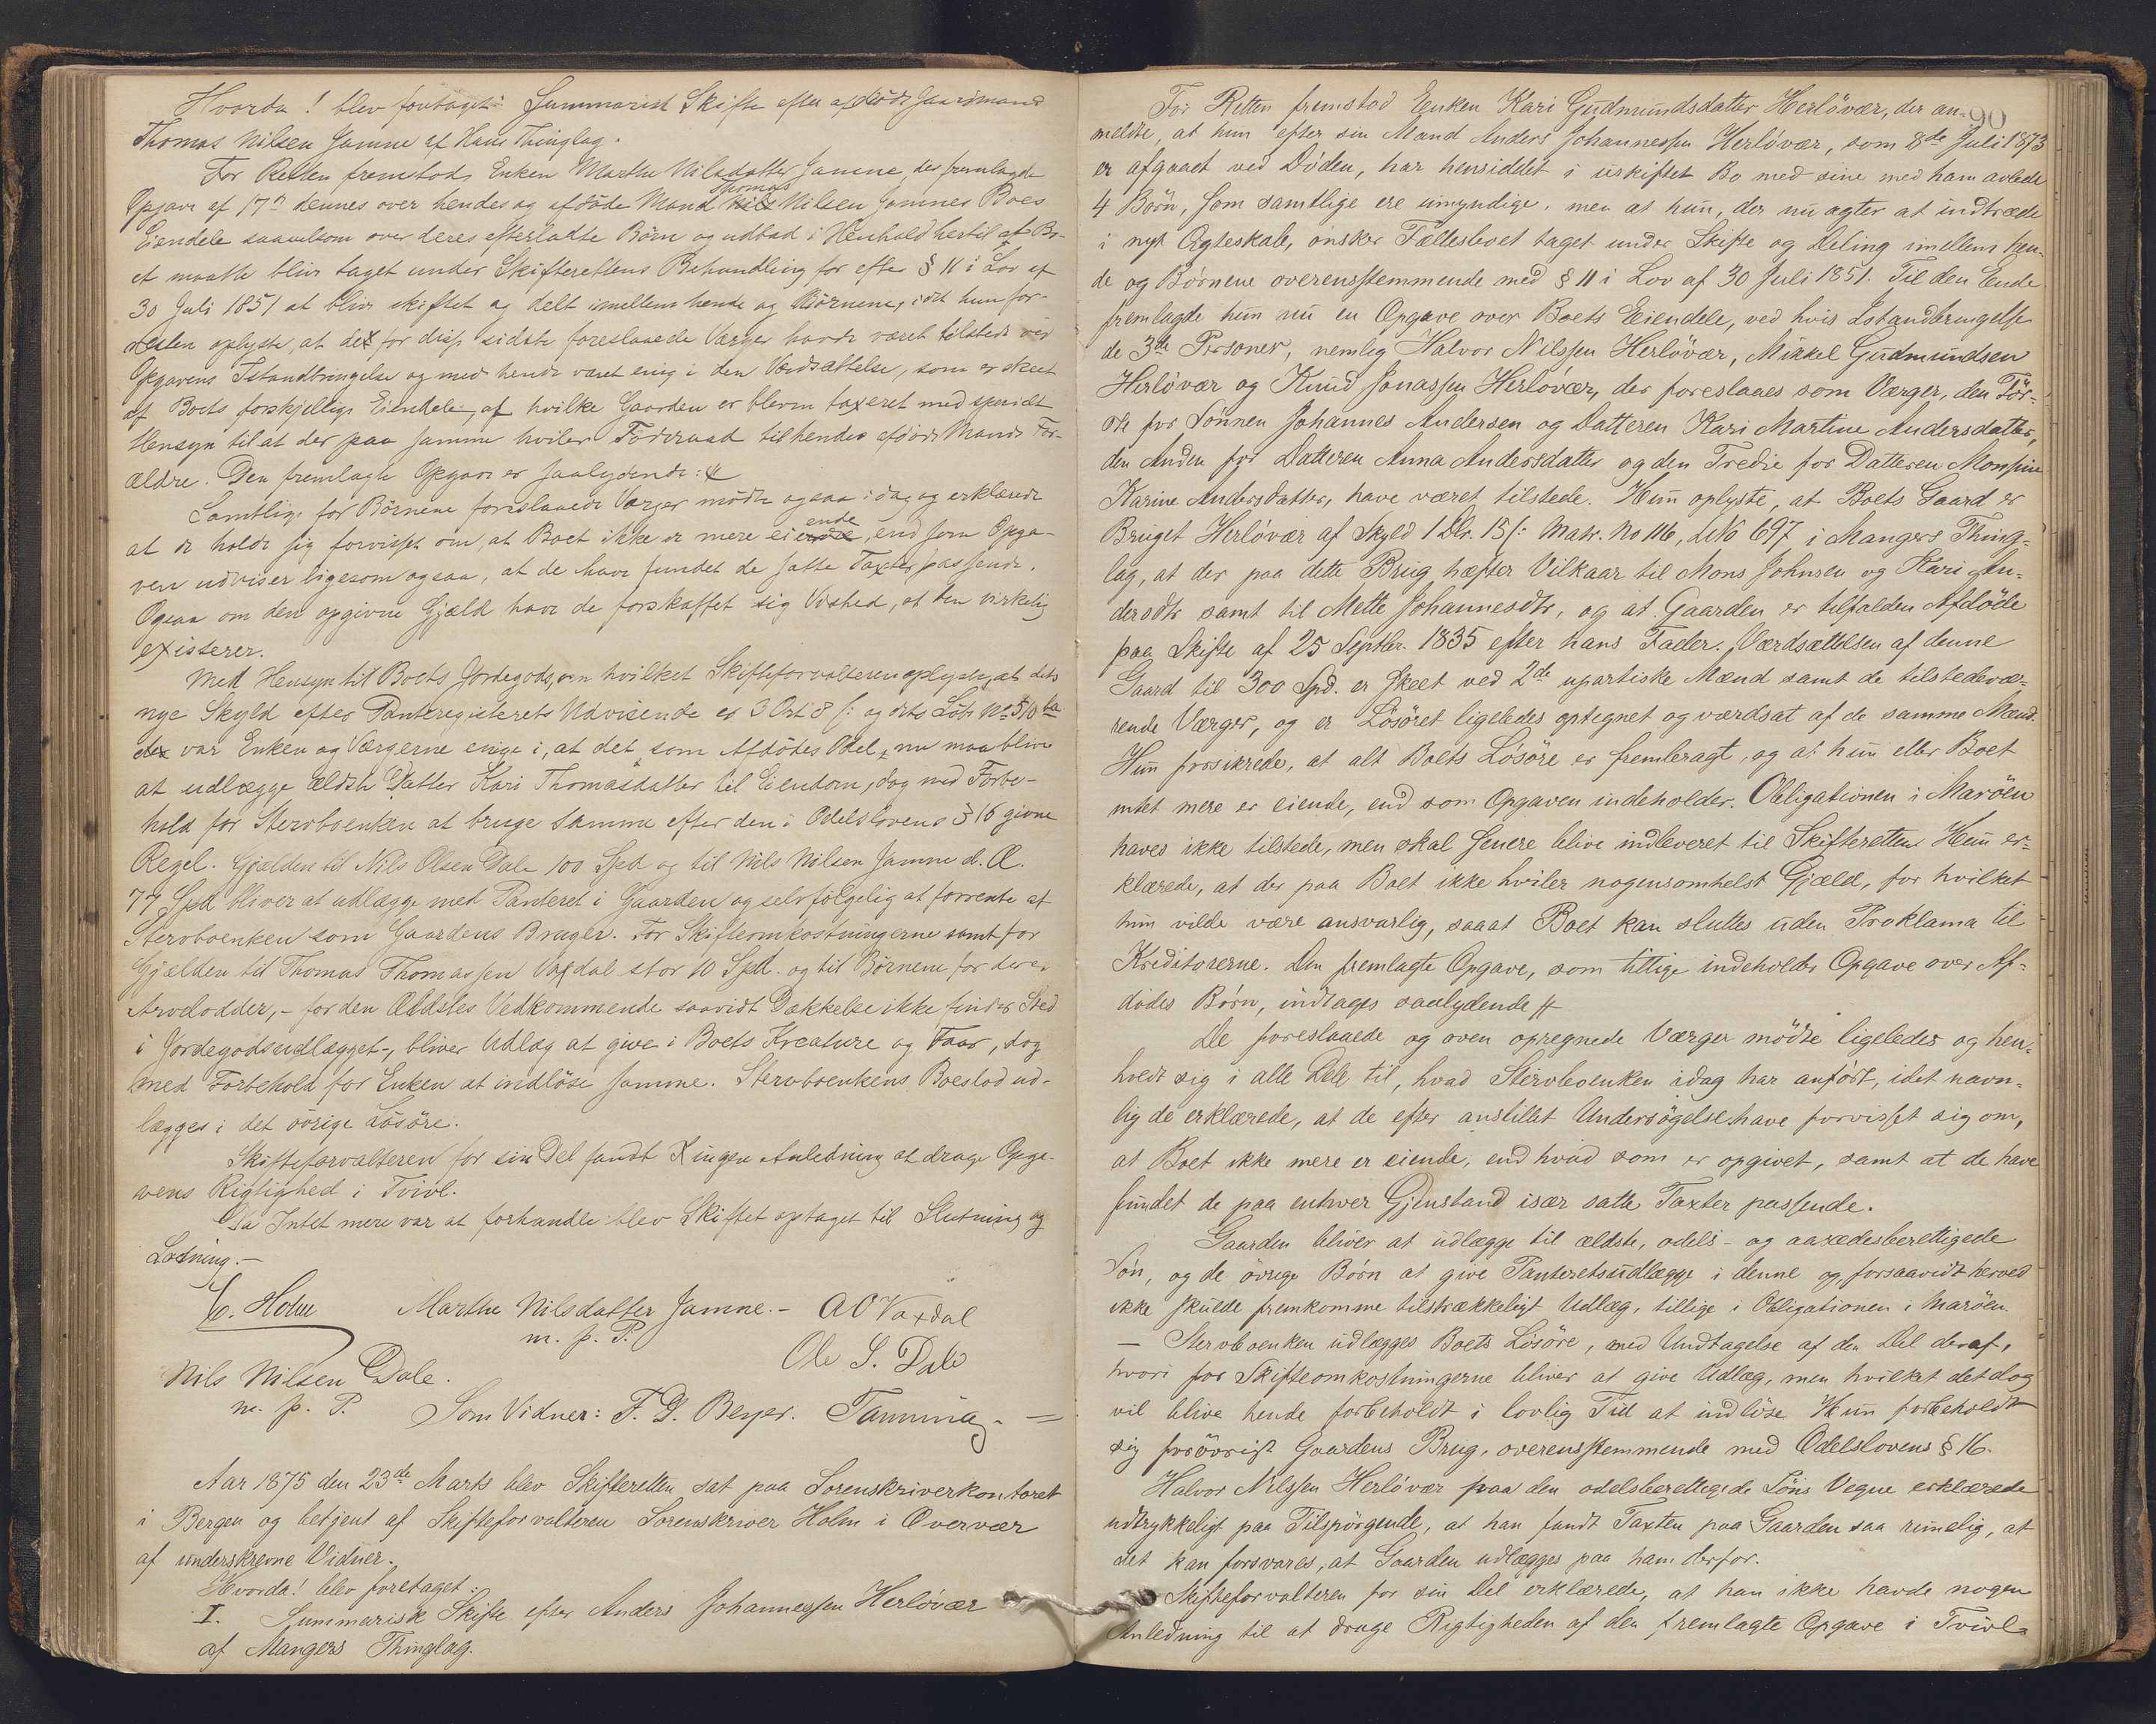 Hvorda! blev foretaget: Summarisk Skifte efter afdöde Gaardmand
Thomas Nilsen Jamne af Haus Thinglag.
For Retten fremstod Enken Marthe Nilsdatter Jamne, der fremlagde
Opgave af 17de dennes over hendes og afdöde Mand Nils Thomas Nilsen Jamnes Boes
Eiendele saavelsom over deres efterladte Börn og udbad i Henhold hertil at Bo-
et maatte blive taget under Skifterettens Behandling for efter § 11 i Lov af
30 Juli 1851 at blive skiftet og delt imellem hende og Börnene, idet hun for-
resten oplyste, at de for disse sidste foreslaaede Værger havde været tilstede ved
Opgavens Istandbringelse og med hende været enig i den Værdsættelse, som er skeet
af Boets forskjellige Eiendele, af hvilke Gaarden er bleven taxeret med specielt
Hensyn til at der paa samme hviler Föderaad til hendes afdöde Mands For-
ældre. Den fremlagte Opgave er saalydende:
Samtlige for Börnene foreslaaede Værger mödte ogsaa idag og erklærede
at de holde sig forvisset om, at Boet ikke er mere eiende, end som Opga-
ven udviser ligesom ogsaa, at de have fundet de satte Taxter passende.
Ogsaa om den opgivne Gjæld have de forskaffet sig Vished, at den virkelig
existerer.
Med Hensyn til Boets Jordegods, om hvilket Skifteforvalteren oplyste, at dets
nye Skyld efter Panteregisterets Udvisende er 3 Ort 8 s: og dets Löbe No 510 ba
var Enken og Værgerne enige i, at det som Afdödes Odel, nu maa blive
at udlægge ældste Datter Kari Thomasdatter til Eiendom, dog med Forbe-
hold for Stervboenken at bruge samme efter den i Odelslovens § 16 givne
Regel. Gjælden til Nils Olsen Dale 100 Spd og til Nils Nilsen Jamne d. Æ.
77 Spd bliver at udlægge med Panteret i Gaarden og selvfölgelig at forrente af
Stervboenken som Gaardens Bruger. For Skifteomkostningerne samt for
Gjælden til Thomas Thomassen Vaxdal stor 10 Spd. og til Börnene for deres
Arvelodder, - for den Ældstes Vedkommende saavidt Dækkelse ikke finder Sted
i Jordegodsudlægget, bliver Udlæg at give i Boets Kreature og Faar, dog
med Forbehold for Enken at indlöse samme. Stervboenkens Boeslod ud-
lægges i det övrige Lösöre.
Skifteforvalteren for sin Del fandt ingen Anledning at drage Opga-
vens Rigtighed i Tvivl.
Da Intet mere var at forhandle blev Skiftet optaget til Slutning og
Lodning. -
C. Holm Marthe Nilsdatter Jamne. - AO Vaxdal
m. p. P.
Nils Nilsen Dale. Ole S. Dale
m. p. P. Som Vidner: F. D. Beyer. Tanning. =
Aar 1875 den 23de Marts blev Skifteretten sat paa Sorenskriverkontoret
i Bergen og betjent af Skifteforvalteren Sorenskriver Holm i Overvær
af underskrevne Vidner.
Hvorda! blev foretaget:
I. Summarisk Skifte efter Anders Johannessen Herlövær
af Mangers Thinglag.
90
For Retten fremstod Enken Kari Gudmundsdatter Herlövær, der an-
meldte, at hun efter sin Mand Anders Johannessen Herlövær, som 8de Juli 1873
er afgaaet ved Döden, har hensiddet i uskiftet Bo med sine med ham avlede
4 Börn, som samtlige ere umyndige, men at hun, der nu agter at indtræde
i nyt Ægteskab, önsker Fællesboet taget under Skifte og Deling imellem hen-
de og Börnene overensstemmende med § 11 i Lov af 30 Juli 1851. Til den Ende
fremlagde hun nu en Opgave over Boets Eiendele, ved hvis Istandbringelse
de 3de Personer, nemlig Halvor Nilssen Herlövær, Mikkel Gudmundsen
Herlövær og Knud Jonassen Herlövær, der foreslaaes som Værger, den För-
ste for Sönnen Johannes Andersen og Datteren Kari Martine Andersdatter,
den Anden for Datteren Anna Andersdatter og den Tredie for Datteren Monsine
Karine Andersdatter, have været tilstede. Hun oplyste, at Boets Gaard er
Bruget Herlövær af Skyld 1 Dlr. 15 s: Matr. No 116, LNo 697 i Mangers Thing-
lag, at der paa dette Brug hæfter Vilkaar til Mons Johnsen og Kari An-
dersdtr samt til Mette Johannesdtr, og at Gaarden er tilfalden Afdöde
paa Skifte af 25 Septbr. 1835 efter hans Fader. Værdsættelsen af denne
Gaard til 300 Spd. er skeet ved 2de upartiske Mænd samt de tilstedevæ-
rende Værger, og er Lösöret ligeledes optegnet og værdsat af de samme Mænd.
Hun forsikrede, at alt Boets Lösöre er frembragt, og at hun eller Boet
intet mere er eiende, end som Opgaven indeholder. Obligationen i Maröen
haves ikke tilstede, men skal senere blive indleveret til Skifteretten. Hun er-
klærede, at der paa Boet ikke hviler nogensomhelst Gjæld, for hvilket
hun vilde være ansvarlig, saaat Boet kan sluttes uden Proklama til
Kreditorerne. Den fremlagte Opgave, som tillige indeholder Opgave over Af-
dödes Börn, indtages saalydende #
De foreslaaede og oven opregnede Værger mödte ligeledes og hen-
holdt sig i alle Dele til, hvad Stervboenken idag har anfört, idet navn-
lig de erklærede, at de efter anstillet Undersögelse have forvisset sig om,
at Boet ikke mere er eiende, end hvad som er opgivet, samt at de have
fundet de paa enhver Gjenstand især satte Taxter passende.
Gaarden bliver at udlægge til ældste, odels- og aasædesberettigede
Sön, og de övrige Börn at give Panteretsudlægge i denne og, forsaavidt herved
ikke skulde fremkomme tilstrækkeligt Udlæg, tillige i Obligationen i Maröen.
- Stervboenken udlægges Boets Lösöre, med Undtagelse af den Del deraf,
hvori for Skifteomkostningerne bliver at give Udlæg, men hvilket det dog
vil blive hende forbeholdt i lovlig Tid at indlöse. Hun forbeholdt
sig forövrigt Gaardens Brug, overensstemmende med Odelslovens § 16.
Halvor Nilssen Herlövær paa den odelsberettigede Söns Vegne erklærede
udtrykkeligt paa Tilspörgende, at han fandt Taxten paa Gaarden saa rimelig, at
det kan forsvares, at Gaarden udlægges paa ham derfor.
Skifteforvalteren for sin Del erklærede, at han ikke havde nogen
Anledning til at drage Rigtigheden af den fremlagte Opgave i Tvivl.